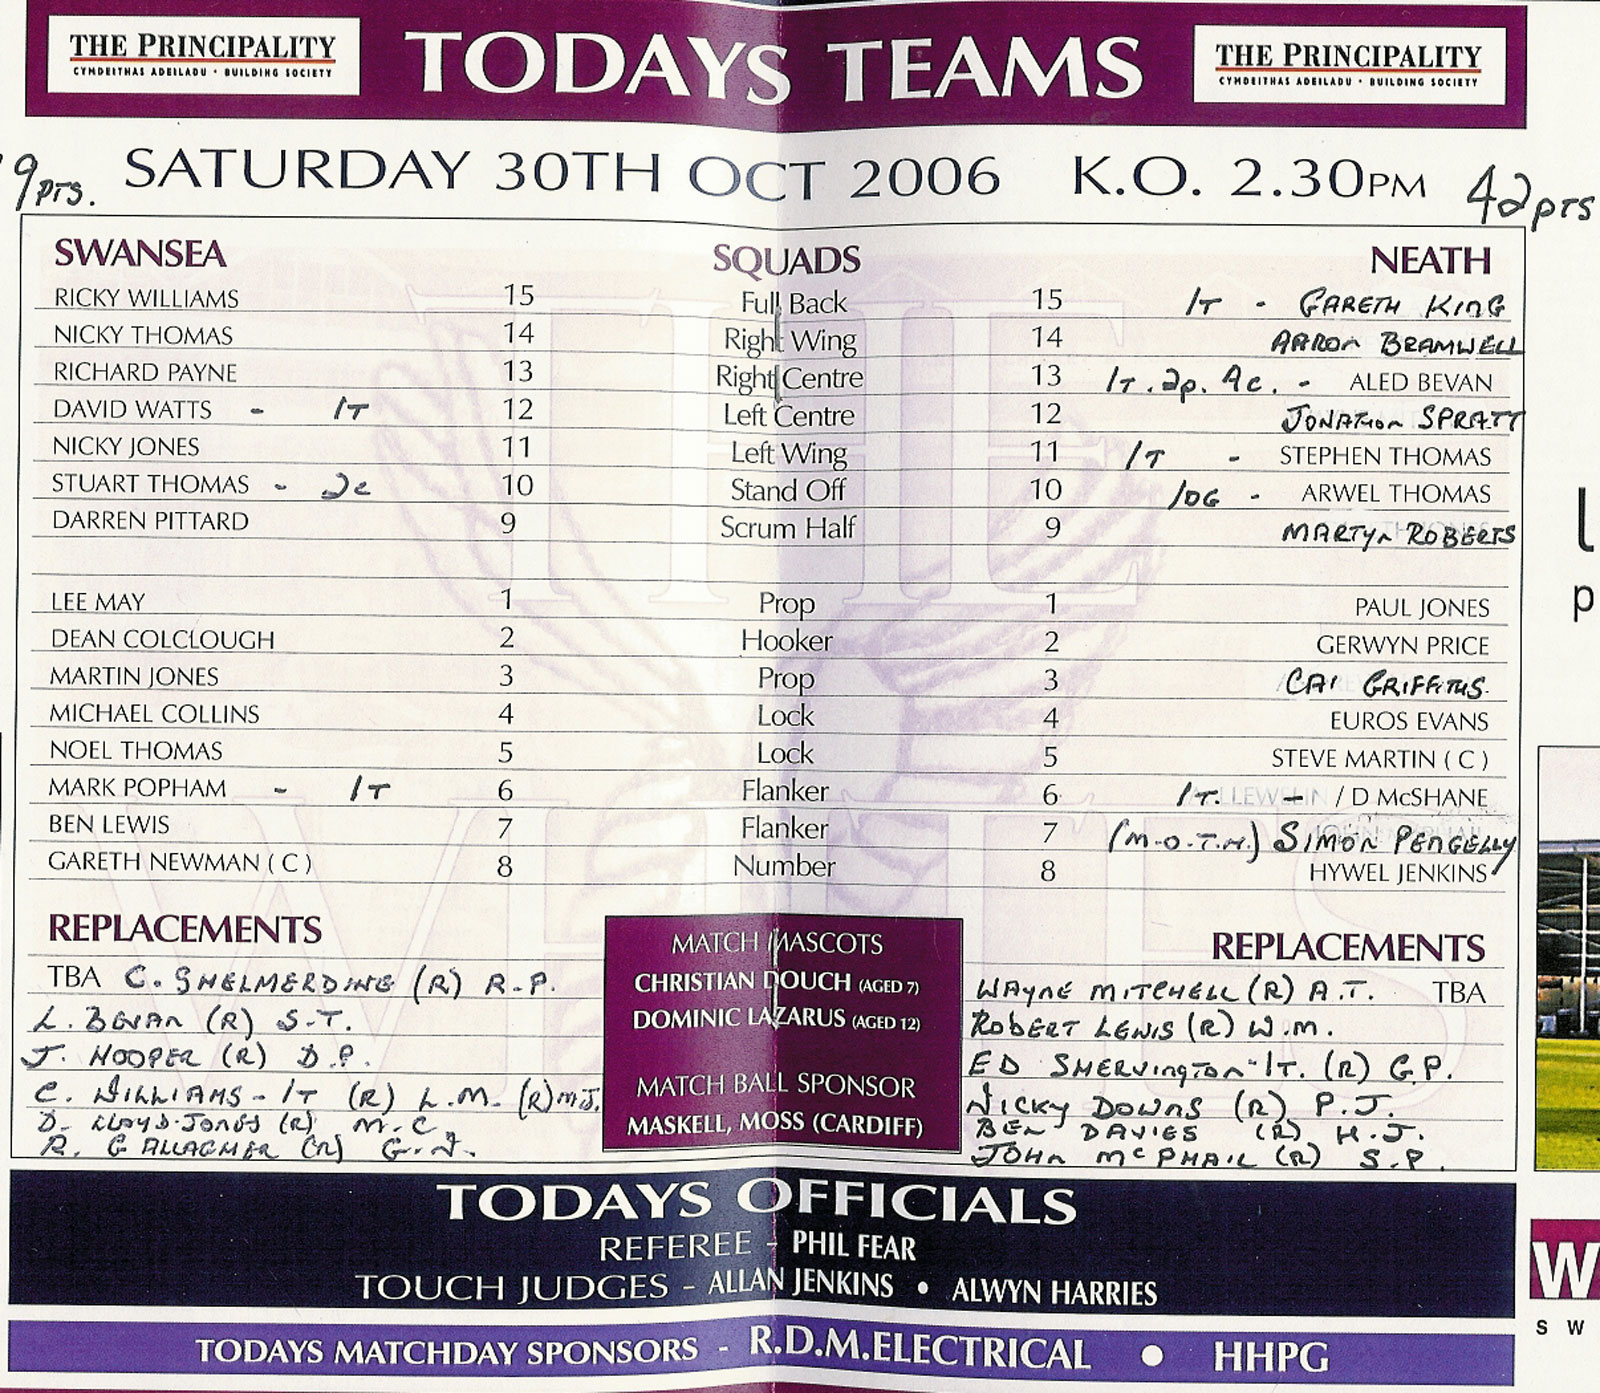 THE PRINCIPALITY
CYMDEITHAS ADEILADU • BUILDING SOCIETY
TODAYS TEAMS
THE PRINCIPALITY
CYMDEITHAS ADEILADU • BUILDING SOCIETY
9 PTS. SATURDAY 30TH OCT 2006 K.O. 2.30PM 42 PTS
SWANSEA SQUADS NEATH
RICKY WILLIAMS 15 Full Back 15 1T - GARETH KING
NICKY THOMAS 14 Right Wing 14 AARON BRAMWELL
RICHARD PAYNE 13 Right Centre 13 1T. 2p. 4c. - ALED BEVAN
DAVID WATTS - 1T 12 Left Centre 12 JONATHON SPRATT
NICKY JONES 11 Left Wing 11 1T - STEPHEN THOMAS
STUART THOMAS - 2c 10 Stand Off 10 1DG - ARWEL THOMAS
DARREN PITTARD 9 Scrum Half 9 MARTYN ROBERTS
LEE MAY 1 Prop 1 PAUL JONES
DEAN COLCLOUGH 2 Hooker 2 GERWYN PRICE
MARTIN JONES 3 Prop 3 CAI GRIFFITHS.
MICHAEL COLLINS 4 Lock 4 EUROS EVANS
NOEL THOMAS 5 Lock 5 STEVE MARTIN ( C )
MARK POPHAM - 1T 6 Flanker 6 1T. - / D McSHANE
BEN LEWIS 7 Flanker 7 (M.O.T.M.) SIMON PENGELLY
GARETH NEWMAN ( C ) 8 Number 8 HYWEL JENKINS
REPLACEMENTS
TBA C. SHELMERDINE (R) R.P.
L. BEVAN (R) S.T.
J. HOOPER (R) D.P.
C. WILLIAMS - 1T (R) L.M. (R) M.J.
D. LLOYD-JONES (R) M.C
R. GALLAGHER (R) G.N.
MATCH MASCOTS
CHRISTIAN DOUCH (AGED 7)
DOMINIC LAZARUS (AGED 12)
MATCH BALL SPONSOR
MASKELL, MOSS (CARDIFF)
REPLACEMENTS
WAYNE MITCHELL (R) A.T. TBA
ROBERT LEWIS (R) W.M.
ED SHERVINGTON - 1T. (R) G.P.
NICKY DOWNS (R) P.J.
BEN DAVIES (R) H.J.
JOHN McPHAIL (R) S.P.
TODAYS OFFICIALS
REFEREE - PHIL FEAR
TOUCH JUDGES - ALLAN JENKINS • ALWYN HARRIES
TODAYS MATCHDAY SPONSORS - R.D.M.ELECTRICAL • HHPG
l
p
W
S W
THE
WHITES